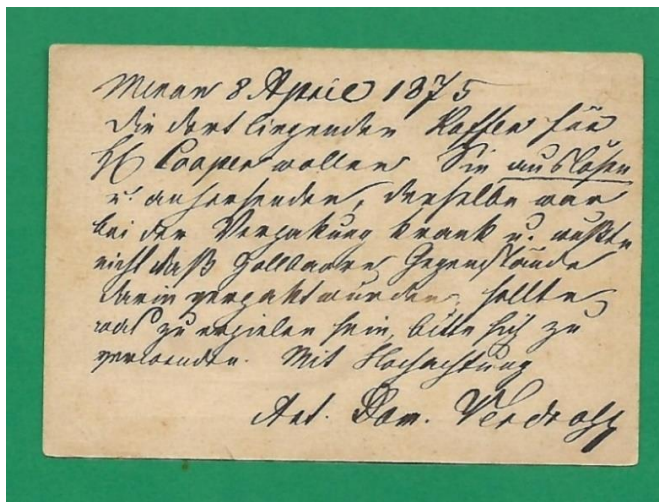 Meran 8 April 1875
die dort liegenden Koffer für
H Cooper wollen Sie auslösen
u. anhersenden, derselbe war
bei der Verpakung krank u. wußte
nicht daß zollbaare Gegenstände
darin verpakt wurden, sollte
was zu erzielen sein, bitte sich zu
verwenden. Mit Hochachtung
Ant. Dom. Verdroß